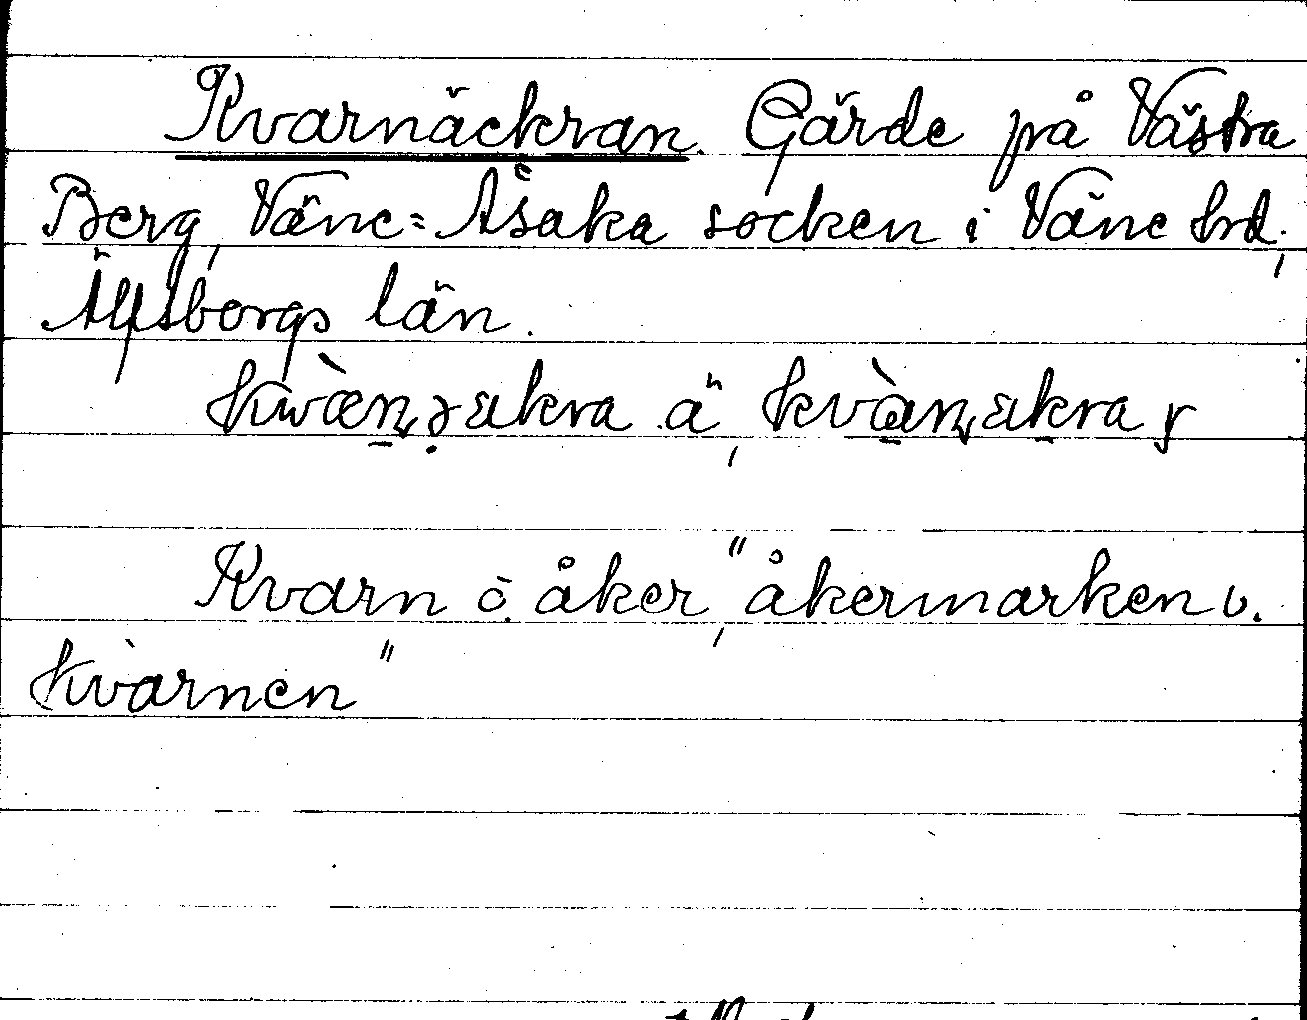 Kvarnäckran. Gärde på Västra
Berg, Väne=Åsaka socken i Väne hrd,
Älfsborgs län.
Kvarn o. åker, "åkermarken v.
kvarnen"